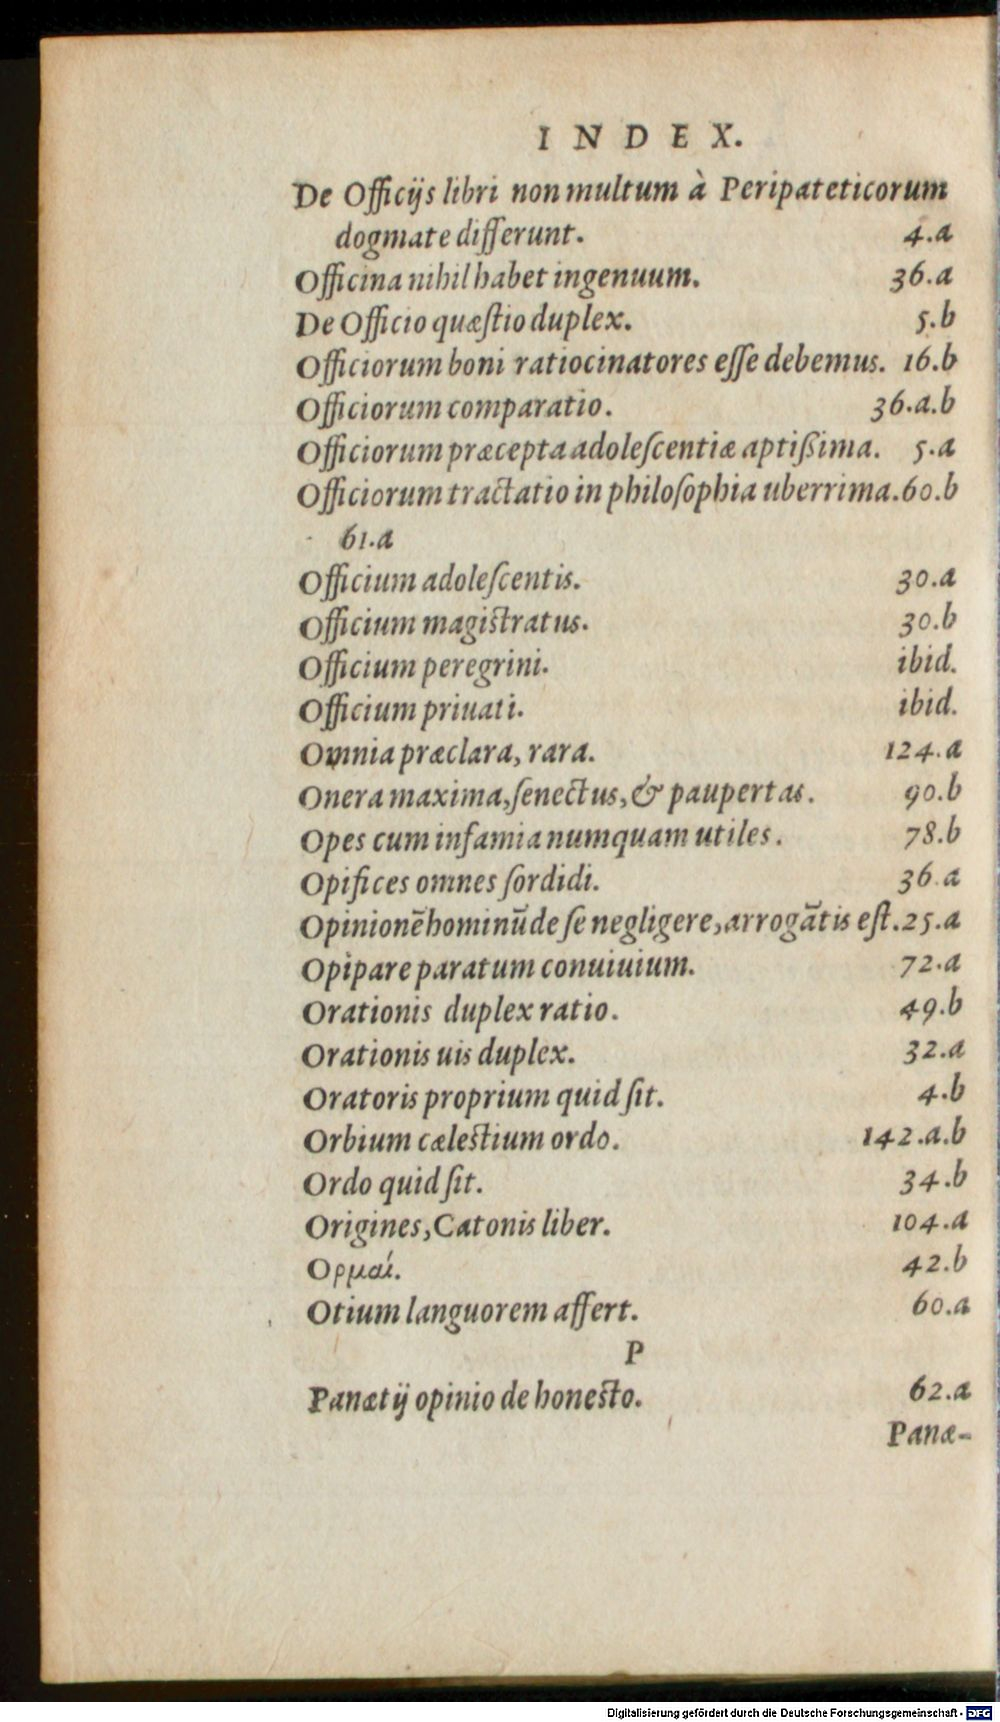 INDEX.
De Officijs libri non multum à Peripateticorum
dogmate differunt. 4.a
Officina nihil habet ingenuum. 36.a
De Officio quæſtio duplex. 5.b
Officiorum boni ratiocinatores eſſe debemus. 16.b
Officiorum comparatio. 36.a.b
Officiorum præcepta adoleſcentiæ aptißima. 5.a
Officiorum tractatio in philoſophia uberrima. 60.b
61.a
Officium adoleſcentis. 30.a
Officium magiſtratus. 30.b
Officium peregrini. ibid.
Officium priuati. ibid.
Omnia præclara, rara. 124.a
Onera maxima, ſenectus, & paupertas. 90.b
Opes cum infamia numquam utiles. 78.b
Opifices omnes ſordidi. 36.a
Opinionē hominū de ſe negligere, arrogātis eſt. 25.a
Opipare paratum conuiuium. 72.a
Orationis duplex ratio. 49.b
Orationis uis duplex. 32.a
Oratoris proprium quid ſit. 4.b
Orbium cæleſtium ordo. 142.a.b
Ordo quid ſit. 34.b
Origines, Catonis liber. 104.a
Ορμαί. 42.b
Otium languorem affert. 60.a
P
Panætij opinio de honeſto. 62.a
Panæ-
Digitalisierung gefördert durch die Deutsche Forschungsgemeinschaft - DFG